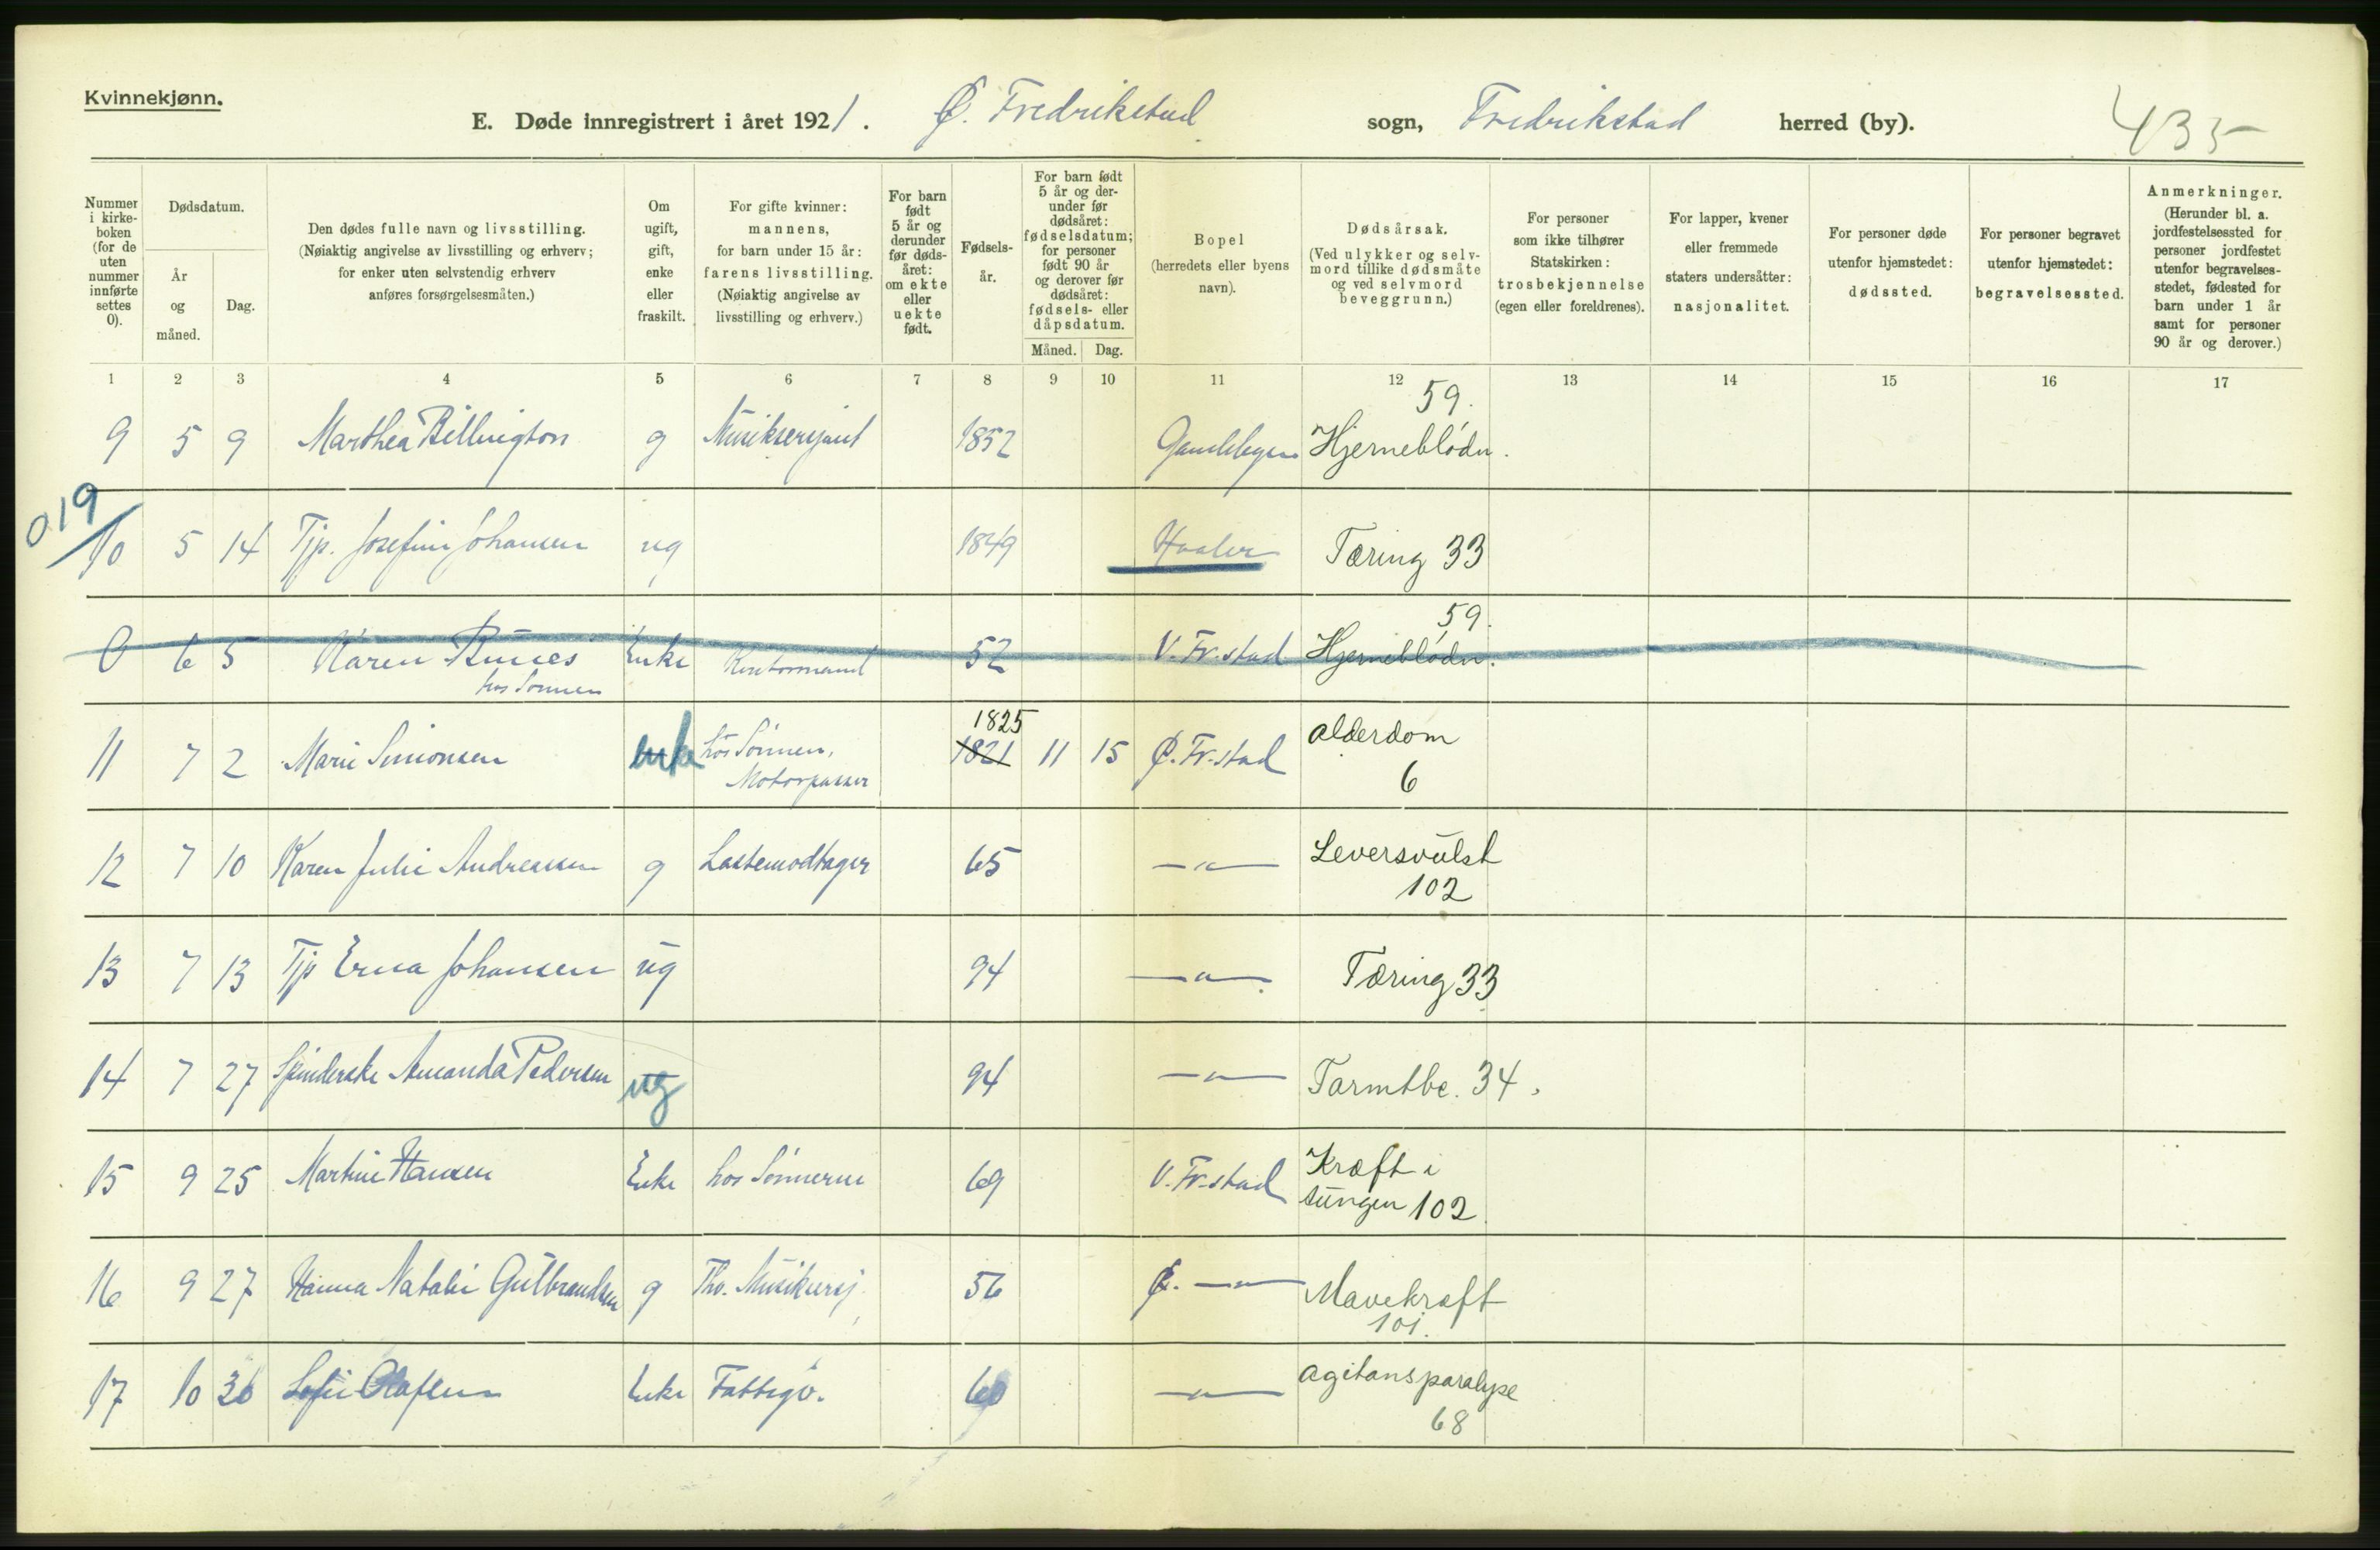 Kvinnekjønn.
E. Døde innregistrert i året 1921. Ø. Fredrikstad sogn, Fredrikstad herred (by). 435
Nummer i kirkeboken (for de uten nummer innførte settes 0).
Dødsdatum.
År og måned.
Dag.
Den dødes fulle navn og livsstilling. (Nøiaktig angivelse av livsstilling og erhverv; for enker uten selvstendig erhverv anføres forsørgelsesmåten.)
Om ugift, gift, enke eller fraskilt.
For gifte kvinner: mannens, for barn under 15 år: farens livsstilling. (Nøiaktig angivelse av livsstilling og erhverv.)
For barn født 5 år og derunder før dødsåret: om ekte eller uekte født.
Fødselsår.
For barn født 5 år og derunder før dødsåret: fødselsdatum; for personer født 90 år og derover før dødsåret: fødsels- eller dåpsdatum.
Måned. Dag.
Bopel (herredets eller byens navn).
Dødsårsak. (Ved ulykker og selvmord tillike dødsmåte og ved selvmord beveggrunn.)
For personer som ikke tilhører Statskirken: trosbekjennelse (egen eller foreldrenes).
For lapper, kvener eller fremmede staters undersåtter: nasjonalitet.
For personer døde utenfor hjemstedet: dødssted.
For personer begravet utenfor hjemstedet: begravelsessted.
Anmerkninger. (Herunder bl. a. jordfestelsessted for personer jordfestet utenfor begravelsesstedet, fødested for barn under 1 år samt for personer 90 år og derover.)
1 2 3 4 5 6 7 8 9 10 11 12 13 14 15 16 17
59.
9 5 9 Marthea Billington g Musiksersjant 1852 Gamlebyen Hjerneblødn.
019
10 5 14 Tjp. Josefine Johansen ug 1849 Hvaler Tæring 33
59.
0 6 5 Karen Enke Kontormand 52 V. Fr.stad Hjerneblødn.
hos Sønnen
1825
11 7 2 Marie Simonsen enke hos Sønnen, 1821 11 15 Ø. Fr.stad Alderdom
Motorpasser 6
12 7 10 Karen Julie Andreassen g Lastemodtager 65 —"— Leversvulst
102
13 7 13 Tjp Erna Johansen ug 94 —"— Tæring 33
14 7 27 Spinderske Amanda Pedersen ug 94 —"— Tarmtbc. 34.
15 9 25 Martine Hansen Enke hos Sønnerne 69 V. Fr.stad Kræft i
tungen 102
16 9 27 Hanna Natalie Gulbrandsen g Fhv. Musikersj. 56 Ø. —"— Mavekræft
101.
17 10 30 Sofie Olafsen Enke Fattigv. 60 —"— Agitansparalyse
68